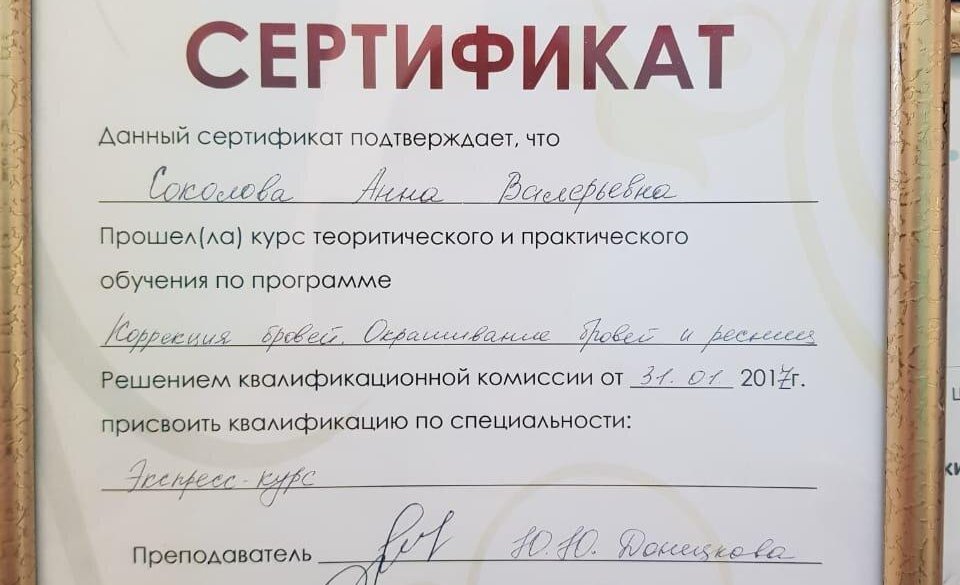 СЕРТИФИКАТ
Данный сертификат подтверждает, что
Соколова Анна Валерьевна
Прошел(ла) курс теоритического и практического
обучения по программе
Коррекция бровей. Окрашивание бровей и ресниц
Решением квалификационной комиссии от 31.01 2017г.
присвоить квалификацию по специальности:
Экспресс-курс
Преподаватель Ю.Ю. Донецкова